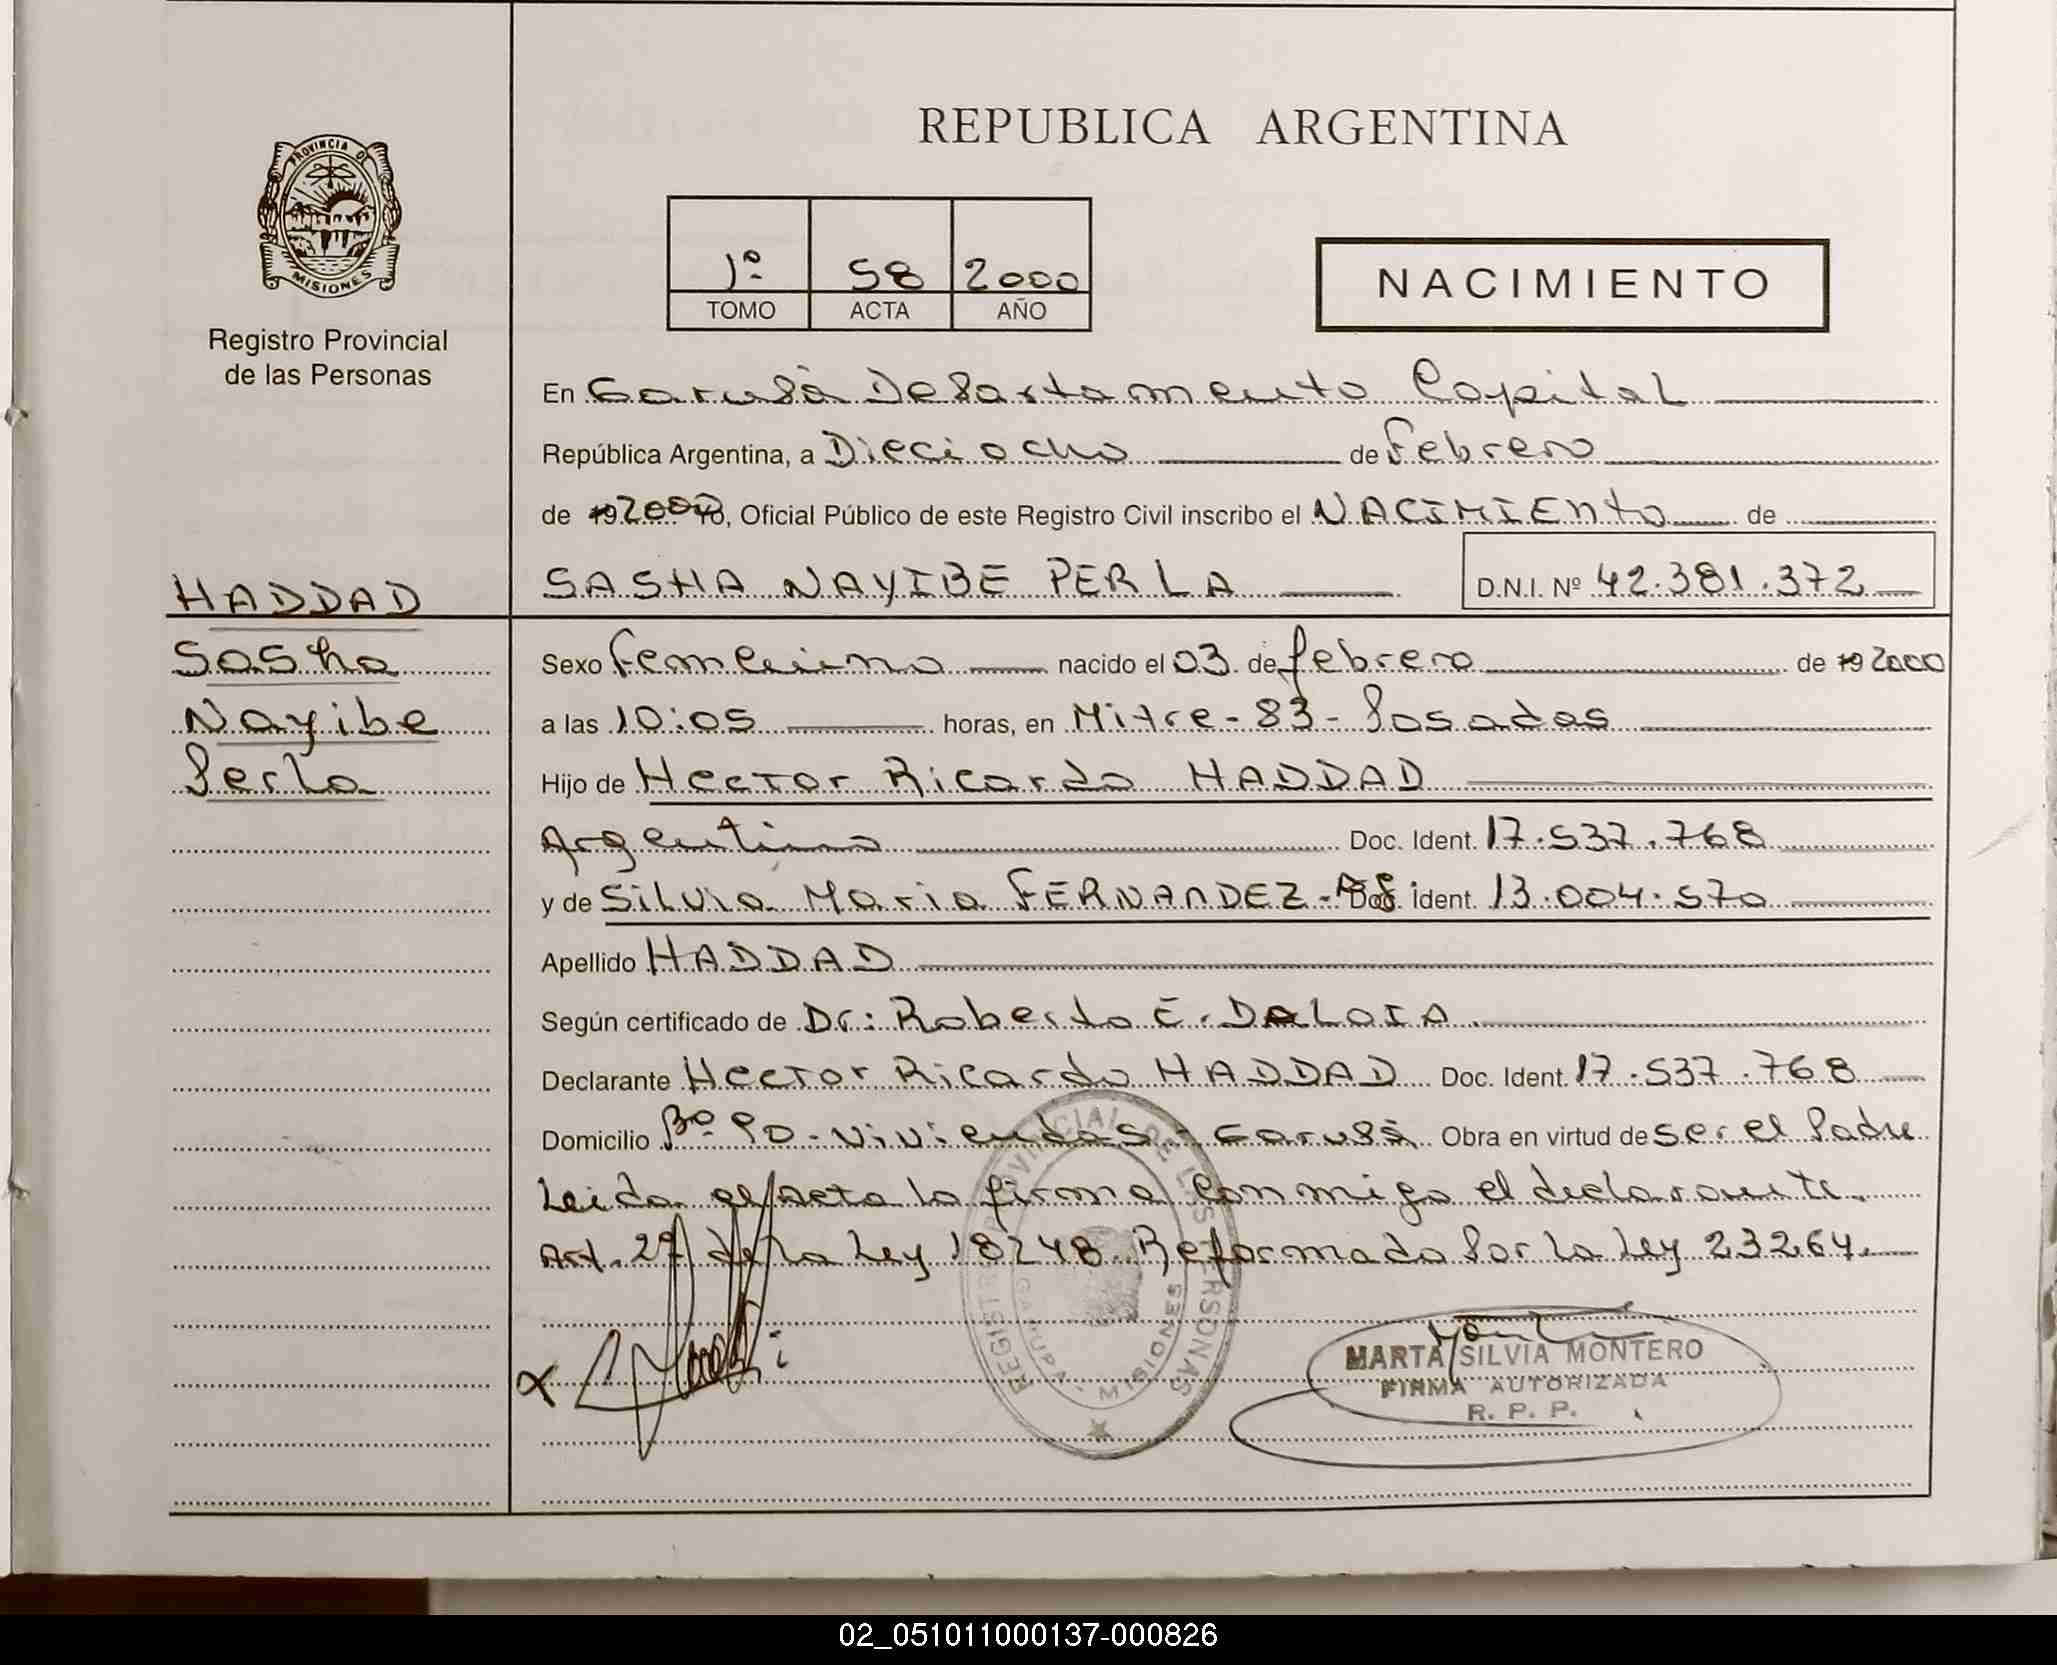 REPUBLICA ARGENTINA
PROVINCIA DE
MISIONES
Registro Provincial
de las Personas
1º 58 2000
TOMO ACTA AÑO
NACIMIENTO
En Garupá Departamento Capital
República Argentina, a Dieciocho de Febrero
de 19 2000 Yo, Oficial Público de este Registro Civil inscribo el NACIMIENto de
SASHA NAYIBE PERLA D.N.I. Nº 42.381.372
HADDAD
Sasha
Nayibe
Perla
Sexo Femenino nacido el 03 de febrero de 19 2000
a las 10:05 horas, en Mitre - 83 - Posadas
Hijo de Hector Ricardo HADDAD
Argentino Doc. Ident. 17.537.768
y de Silvia Maria FERNANDEZ - Doc. Ident. 13.004.570
Apellido HADDAD
Según certificado de Dr: Roberto E. DALOIA
Declarante Hector Ricardo HADDAD Doc. Ident. 17.537.768
Domicilio Bº 90 - Viviendas - Garupá Obra en virtud de ser el Padre
Leida el acta la firma conmigo el declarante.
Art. 29 de la Ley 18248 Reformado por la Ley 23264.
REGISTRO PROVINCIAL DE LAS PERSONAS
GARUPA - MISIONES
MARTA SILVIA MONTERO
FIRMA AUTORIZADA
R. P. P.
02_051011000137-000826